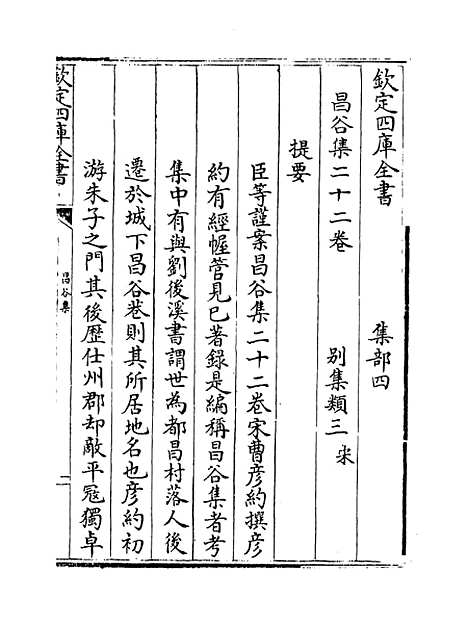 欽定四庫全書　集部四
昌谷集二十二卷　别集類三宋
提要
臣等謹案昌谷集二十二卷宋曹彦約撰彦
約有經幄管見已著録是編稱昌谷集者考
集中有與劉後溪書謂世為都昌村落人後
遷於城下昌谷巷則其所居地名也彦約初
游朱子之門其後歴仕州郡却敵平冦獨卓
欽定四庫全書
昌谷集
二